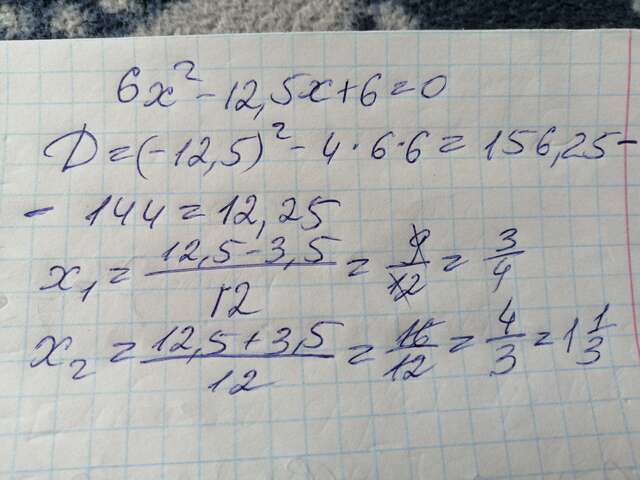 6x² - 12,5x + 6 = 0
D = (-12,5)² - 4 · 6 · 6 = 156,25 -
- 144 = 12,25
x₁ = (12,5 - 3,5)/12 = 9/12 = 3/4
x₂ = (12,5 + 3,5)/12 = 16/12 = 4/3 = 1 1/3